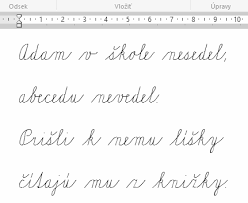 Odsek Vložiť Úpravy
1 2 3 4 5 6 7 8 9 10
Adam v škole nesedel,
abecedu nevedel.
Prišli k nemu líšky
čítajú mu z knižky.